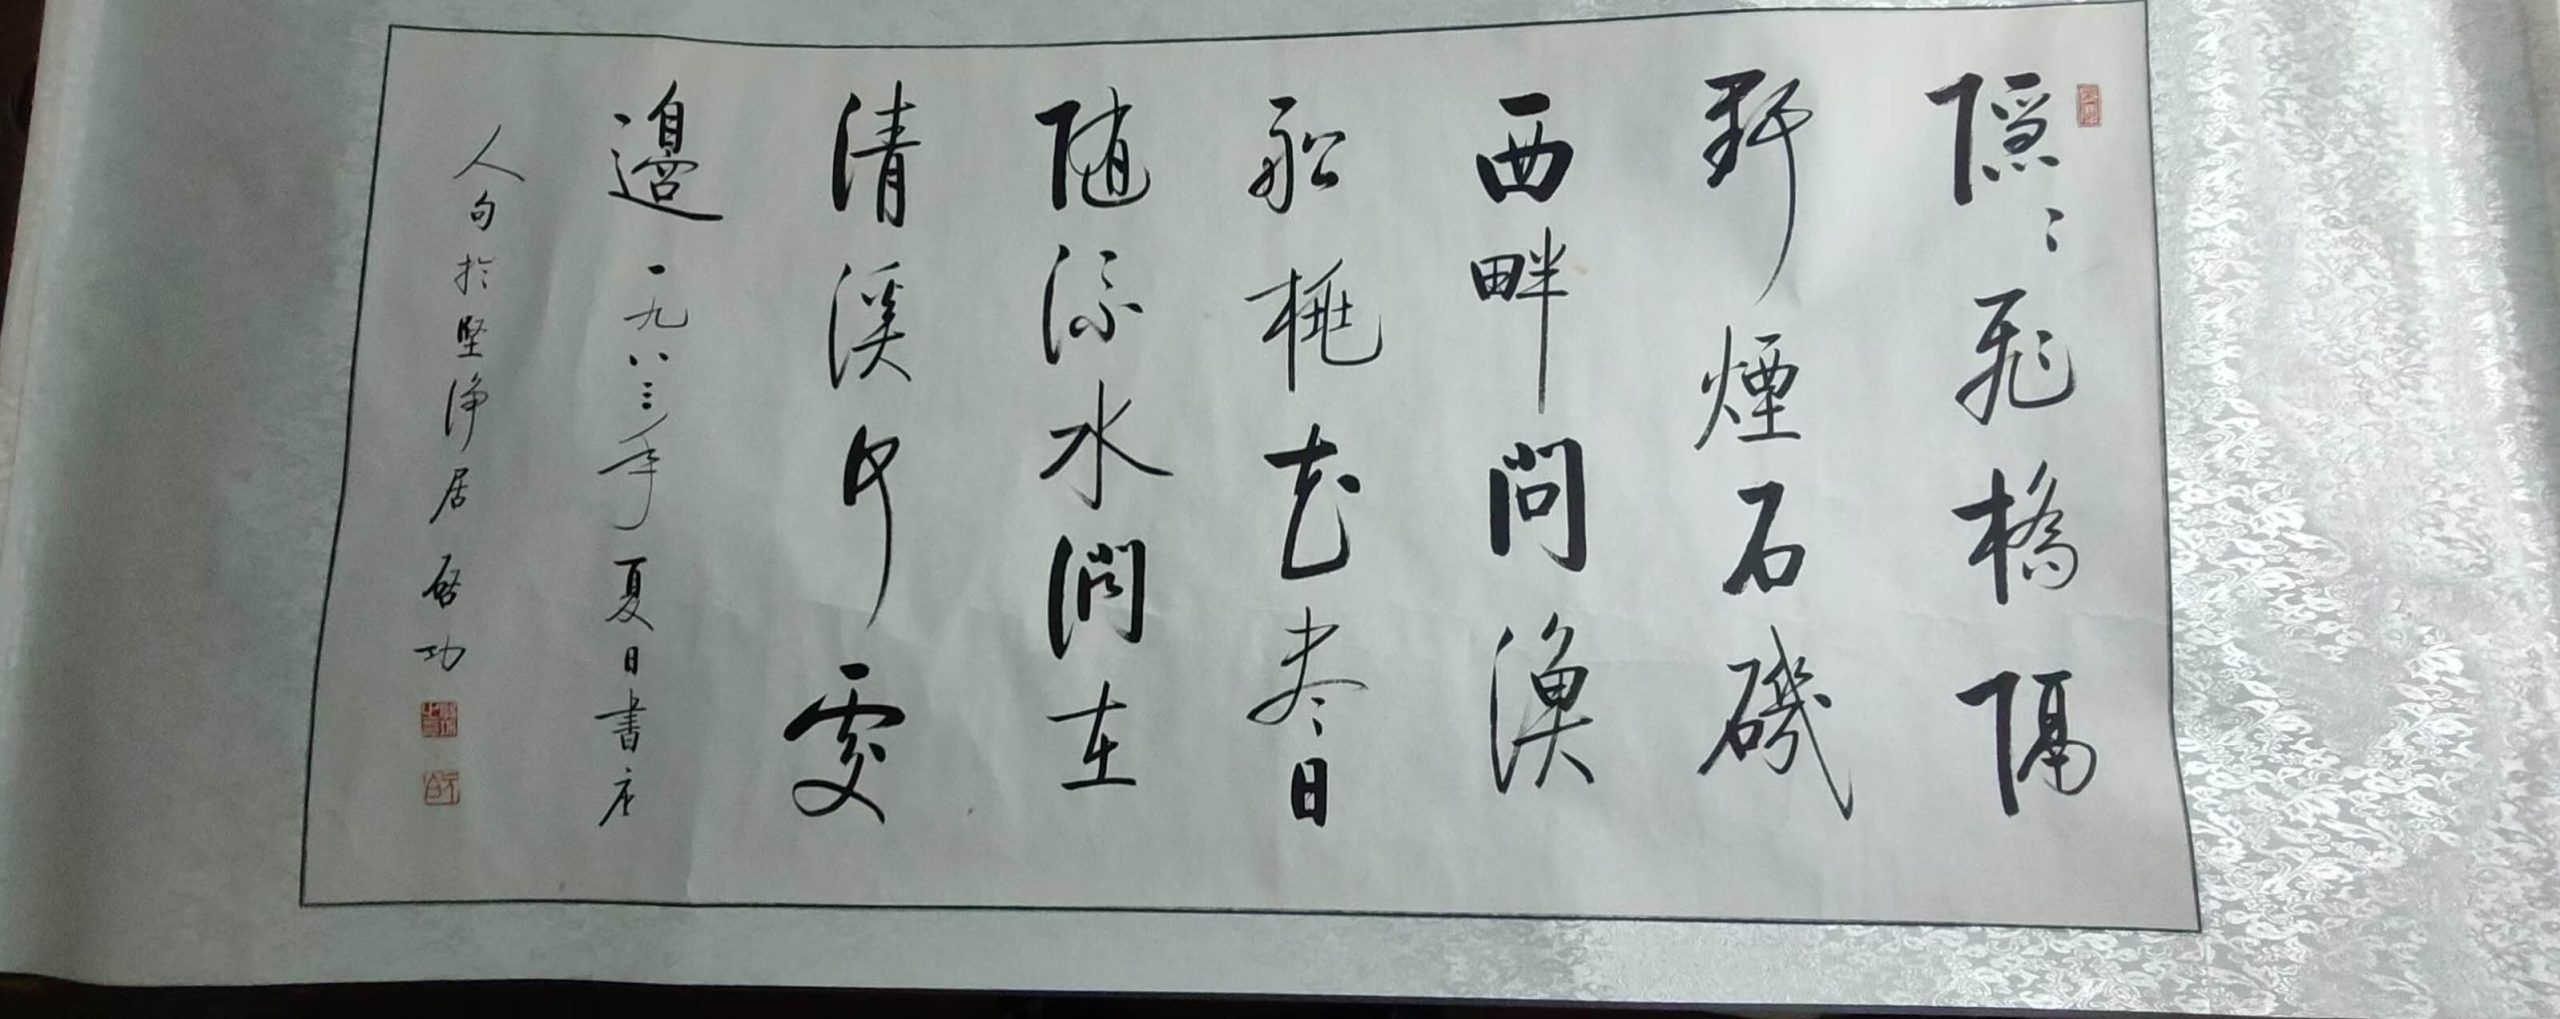 隱〻飛橋隔
野煙石磯
西畔問漁
船桃花盡日
隨流水洞在
清溪何處
邊一九八三年夏日書唐
人句於堅淨居啟功